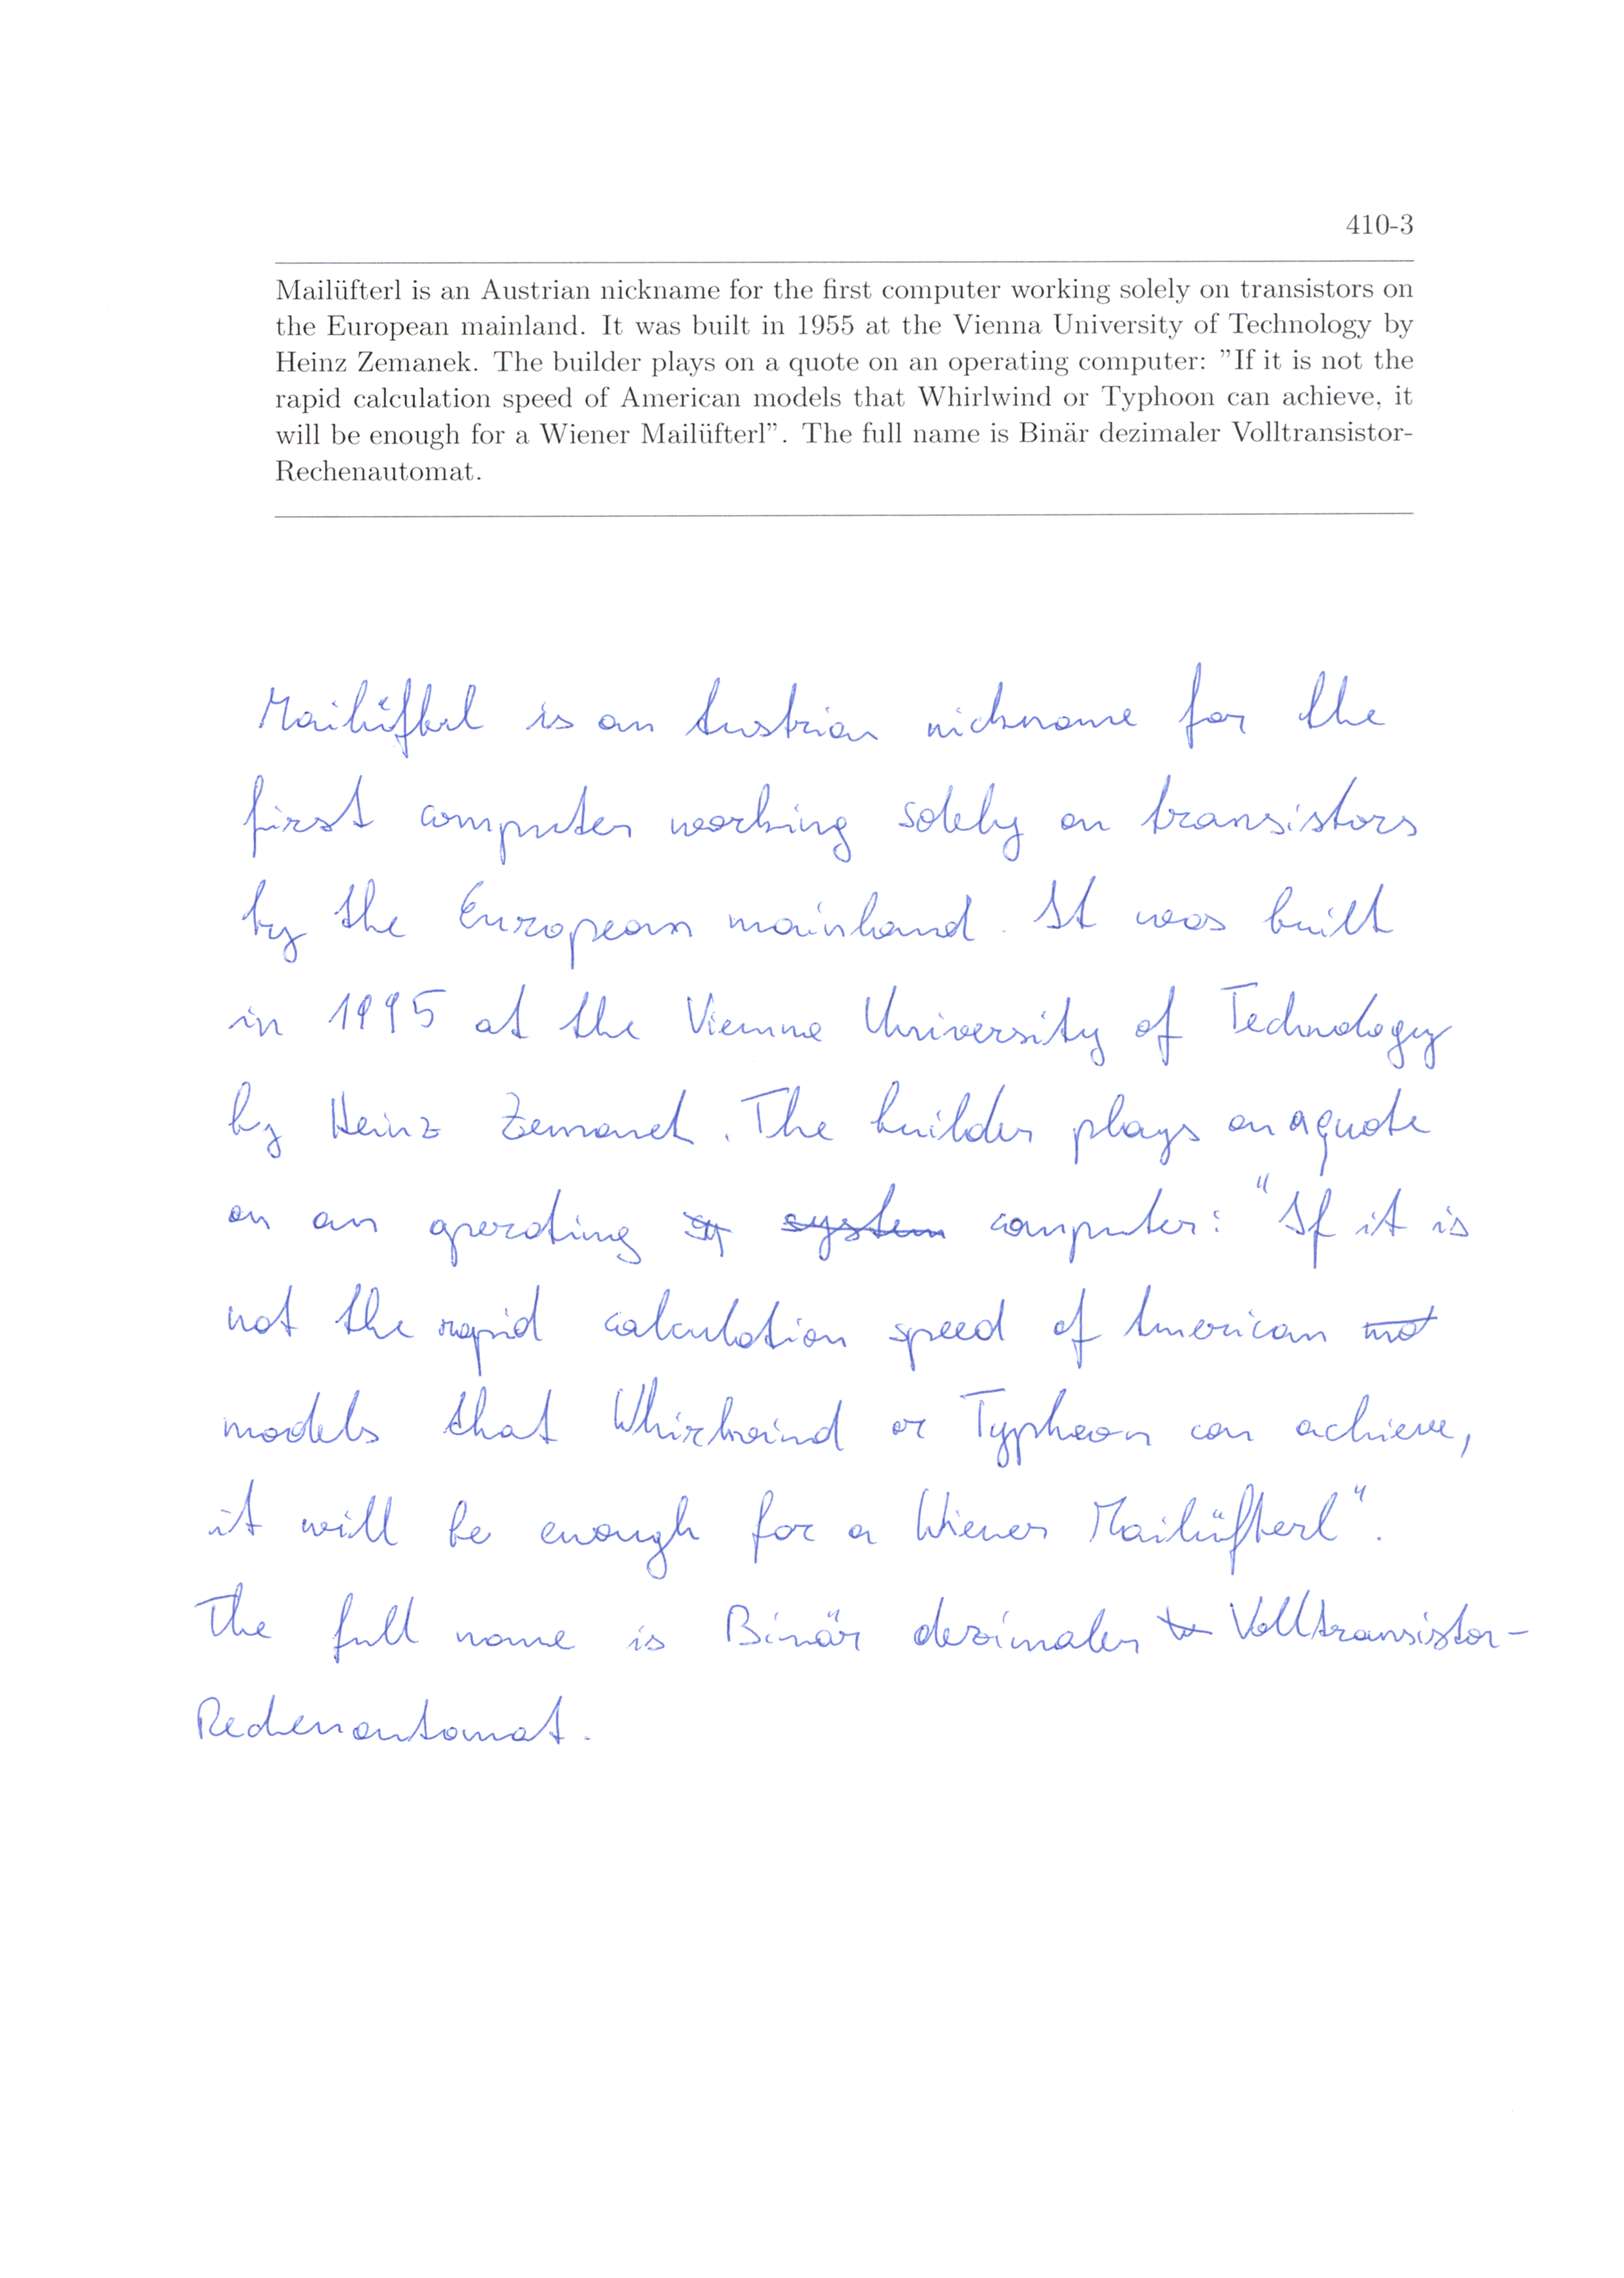 410-3
Mailüfterl is an Austrian nickname for the first computer working solely on transistors on
the European mainland. It was built in 1955 at the Vienna University of Technology by
Heinz Zemanek. The builder plays on a quote on an operating computer: ”If it is not the
rapid calculation speed of American models that Whirlwind or Typhoon can achieve, it
will be enough for a Wiener Mailüfterl”. The full name is Binär dezimaler Volltransistor-
Rechenautomat.
Mailüfterl is an Austrian nickname for the
first computer working solely on transistors
by the European mainland. It was built
in 1995 at the Vienna University of Technology
by Heinz Zemanek. The builder plays on a quote
on an operating sy system computer: "If it is
not the rapid calculation speed of American mod
models that Whirlwind or Typhoon can achieve,
it will be enough for a Wiener Mailüfterl".
The full name is Binär dezimaler Volltransistor-
Rechenautomat.